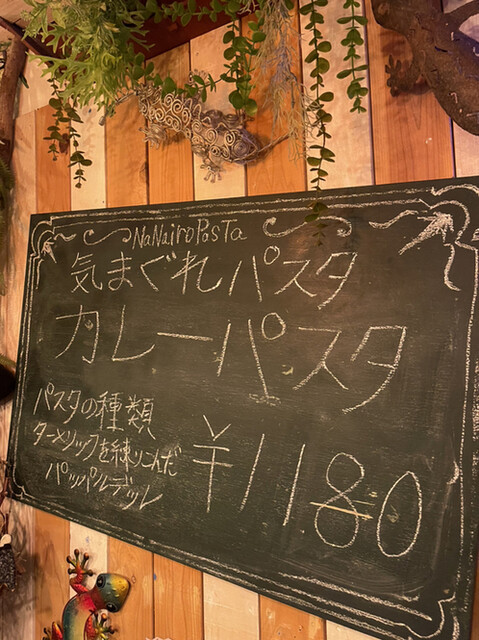 NaNairoPasTa
気まぐれパスタ
カレーパスタ
パスタの種類
ターメリックを練りこんだ
パッパルデッレ
¥1180